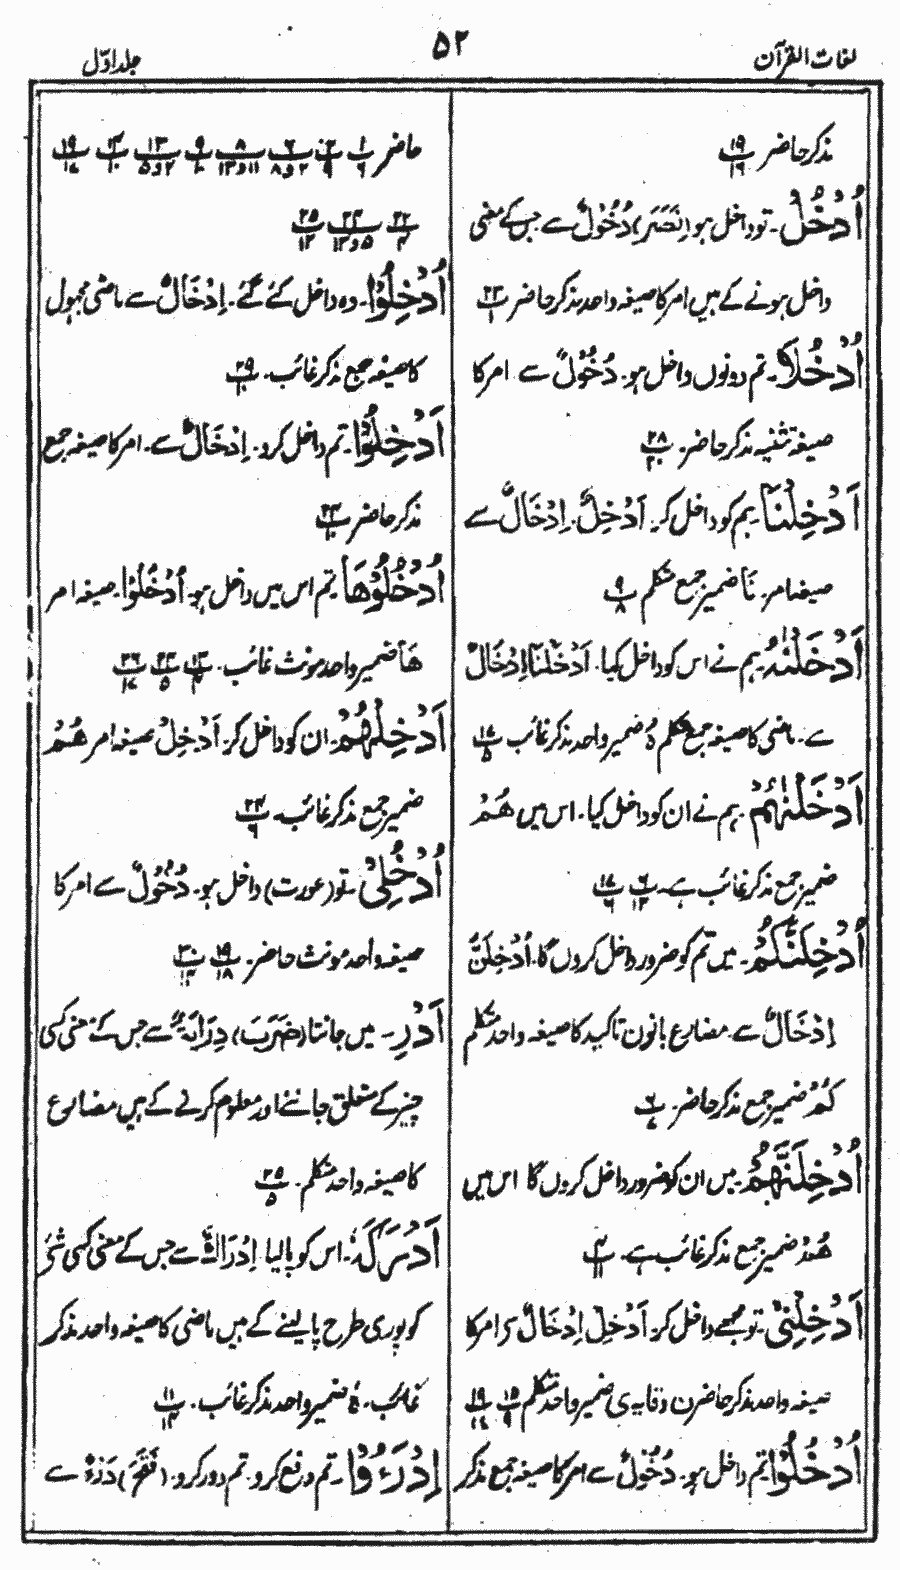 لغات القرآن
۵۲
جلد اوّل
مذکر حاضر ۱۹/۱۶
اُدْخُلْ۔ تو داخل ہو (نَصَرَ) دُخُوْلٌ سے جس کے معنی
داخل ہونے کے ہیں امر کا صیغہ واحد مذکر حاضر ۲۳/۱
اُدْخُلَا۔ تم دونوں داخل ہو۔ دُخُوْلٌ سے امر کا
صیغہ تثنیہ مذکر حاضر۔ ۲۸/۲۰
اَدْخِلْنَا۔ ہم کو داخل کر۔ اَدْخِلْ، اِدْخَالٌ سے
صیغہ امر۔ نَا ضمیر جمع متکلم ۹/۸
اَدْخَلْنٰہُ۔ ہم نے اس کو داخل کیا۔ اَدْخَلْنَا اِدْخَالٌ
سے۔ ماضی کا صیغہ جمع متکلم ہُ ضمیر واحد مذکر غائب ۱۷/۵
اَدْخَلْنٰہُمْ۔ ہم نے ان کو داخل کیا۔ اس میں ھُمْ
ضمیر جمع مذکر غائب ہے۔ ۶/۱۳ ۱۷/۶
اُدْخِلَنَّکُمْ۔ میں تم کو ضرور داخل کروں گا۔ اُدْخِلَنَّ
اِدْخَالٌ سے۔ مضارع بانون تاکید کا صیغہ واحد متکلم
کُمْ ضمیر جمع مذکر حاضر۔ ۶/۷
اُدْخِلَنَّھُمْ۔ میں ان کو ضرور داخل کروں گا اس میں
ھُمْ ضمیر جمع مذکر غائب ہے۔ ۴/۱۱
اَدْخِلْنِیْ۔ تو مجھے داخل کر۔ اَدْخِلْ اِدْخَالٌ سے امر کا
صیغہ واحد مذکر حاضر ن وقایہ ی ضمیر واحد متکلم ۱۵/۹ ۱۹/۱۷
اُدْخُلُوْا تم داخل ہو۔ دُخُوْلٌ سے امر کا صیغہ جمع مذکر
حاضر ۱/۶ ۲/۹ ۶/۲و۸ ۸/۱۱و۱۳ ۹/۱۰ ۱۳/۲و۵ ۱۴/۱۰ ۱۹/۱۷
۲۲/۴ ۲۴/۵و۱۳ ۲۵/۱۲
اُدْخِلُوْا۔ وہ داخل کئے گئے۔ اِدْخَالٌ سے ماضی مجہول
کا صیغہ جمع مذکر غائب۔ ۲۹/۱۰
اَدْخِلُوْا۔ تم داخل کرو۔ اِدْخَالٌ سے۔ امر کا صیغہ جمع
مذکر حاضر ۲۴/۱۰
اُدْخُلُوْھَا تم اس میں داخل ہو۔ اُدْخُلُوْا۔ صیغہ امر
ھَا ضمیر واحد مونث غائب۔ ۱۴/۴ ۲۴/۵ ۲۶/۱۷
اَدْخِلْھُمْ۔ ان کو داخل کر۔ اَدْخِلْ صیغہ امر ھُمْ
ضمیر جمع مذکر غائب۔ ۲۴/۶
اُدْخُلِیْ۔ تو (عورت) داخل ہو۔ دُخُوْلٌ سے امر کا
صیغہ واحد مونث حاضر۔ ۱۹/۱۸ ۳۰/۱۴
اَدْرِ۔ میں جانتا (ضَرَبَ) دِرَایَۃٌ سے جس کے معنی کسی
چیز کے متعلق جاننے اور معلوم کرنے کے ہیں مضارع
کا صیغہ واحد متکلم۔ ۲۵/۵
اَدْرَکَہٗ۔ اس کو پالیا اِدْرَاکٌ سے جس کے معنی کسی شئ
کو پوری طرح پا لینے کے ہیں ماضی کا صیغہ واحد مذکر
غائب۔ ہٗ ضمیر واحد مذکر غائب۔ ۱۱/۱۴
اِدْرَءُوْا۔ تم دفع کرو۔ تم دور کرو۔ (فَتَحَ) دَرْءٌ سے